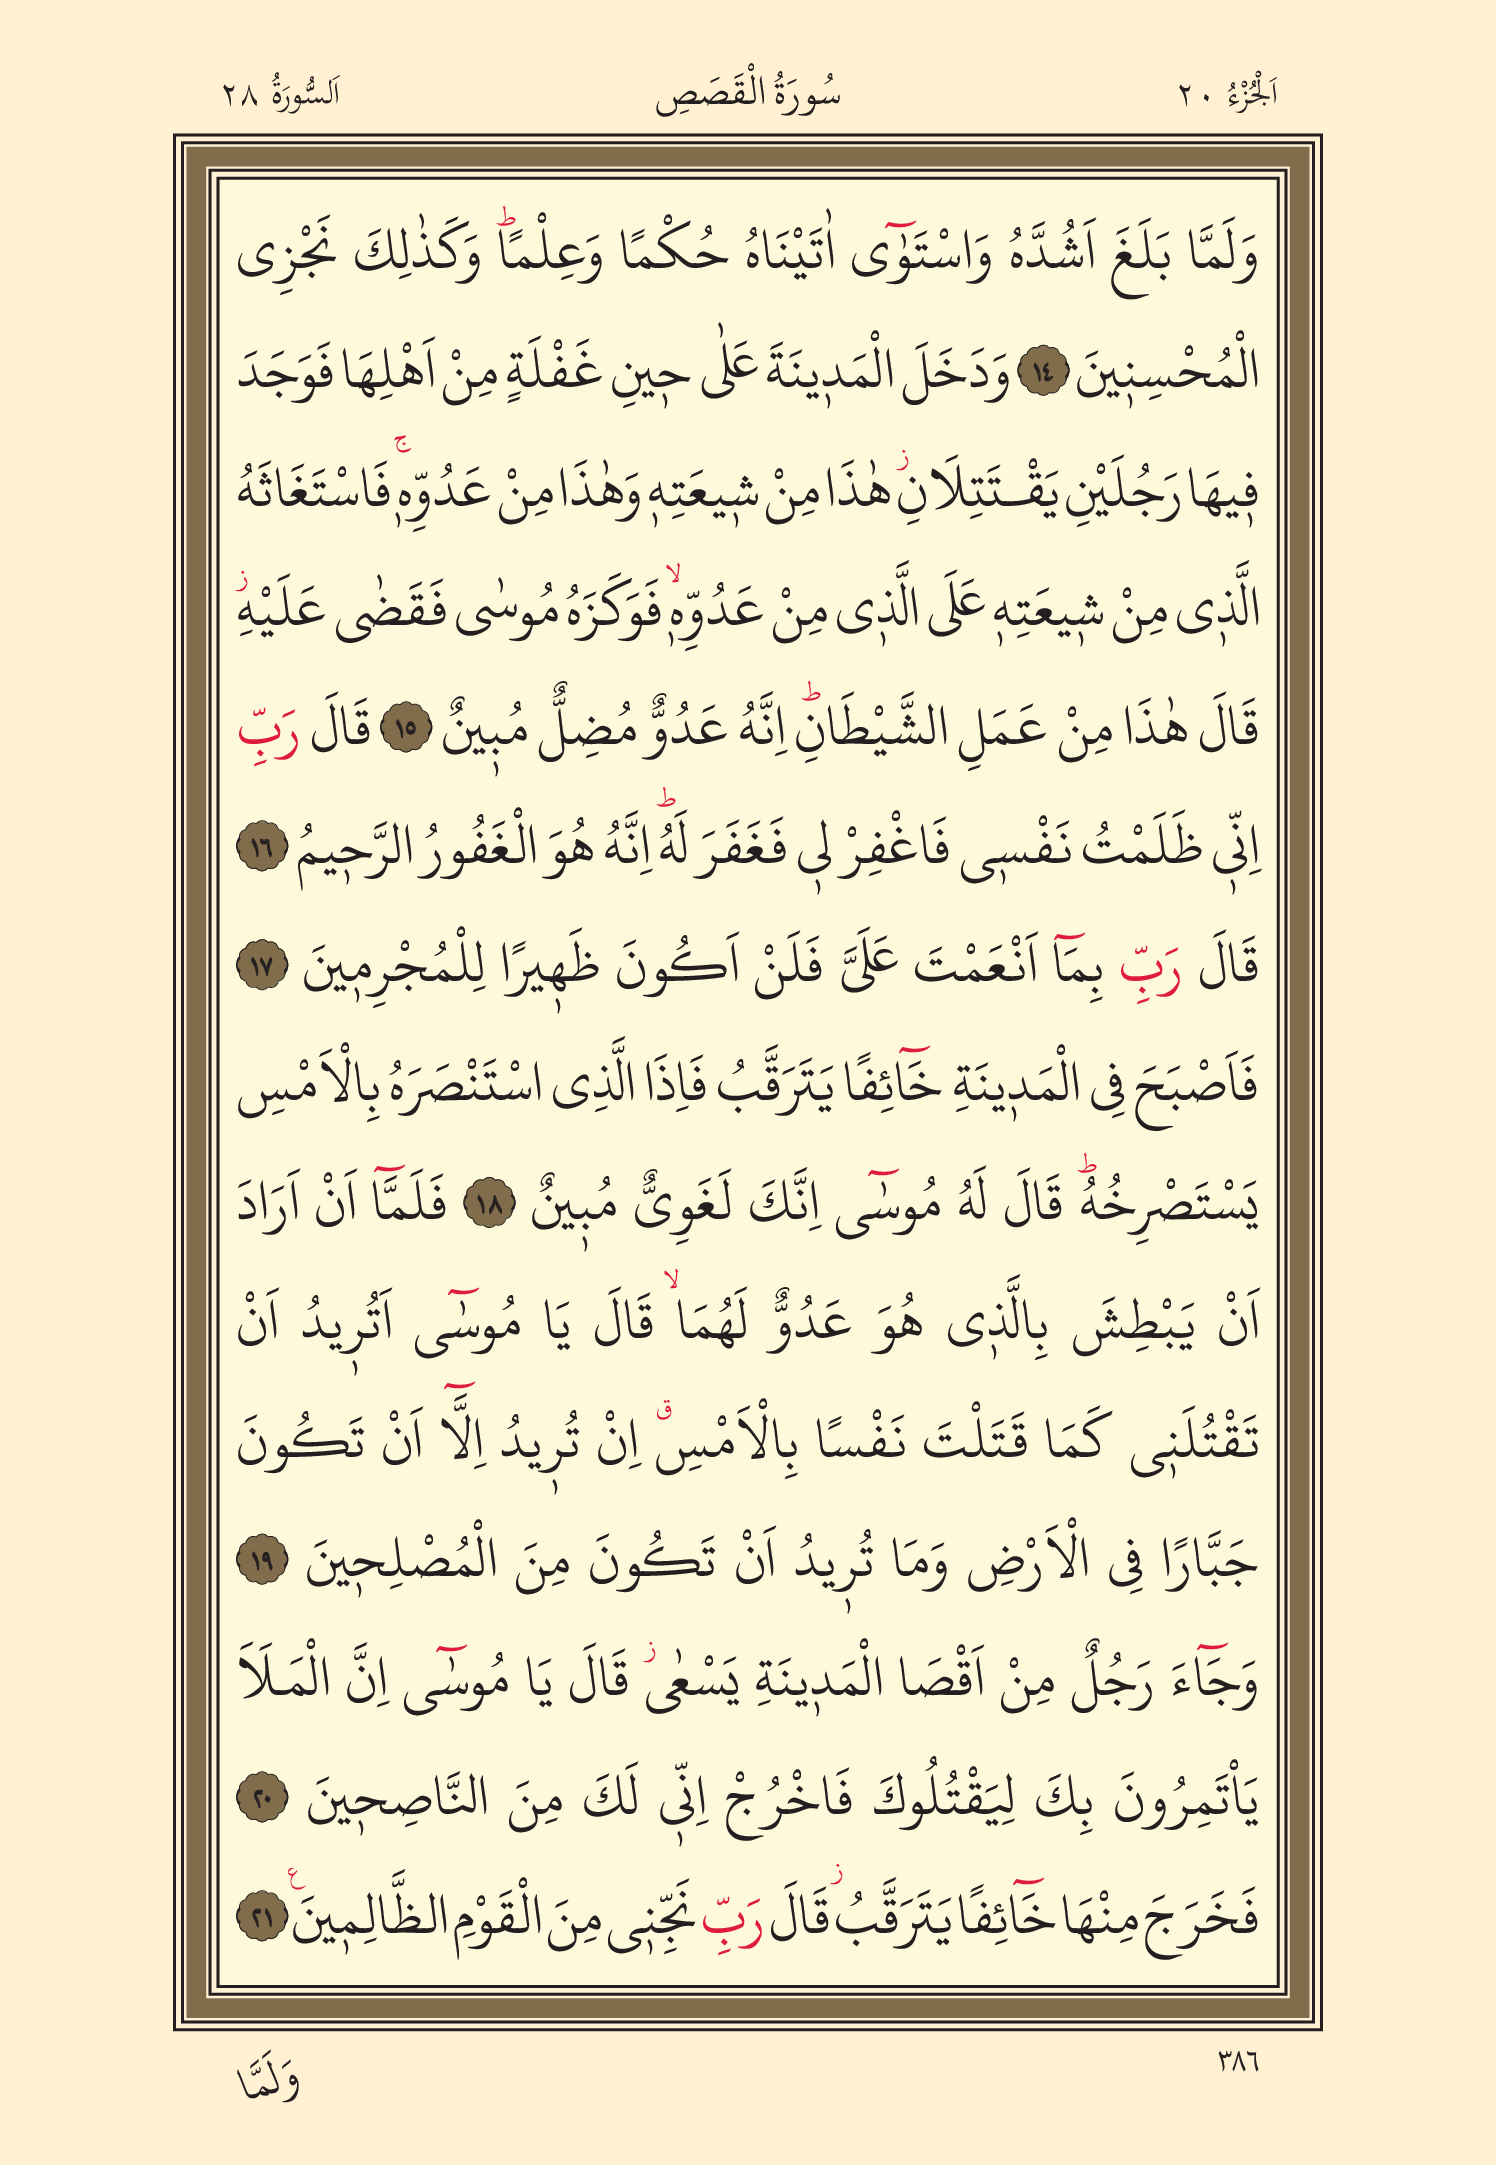 اَلْجُزْءُ ٢٠ سُورَةُ الْقَصَصِ اَلسُّورَةُ ٢٨
وَلَمَّا بَلَغَ اَشُدَّهُ وَاسْتَوٰٓى اٰتَيْنَاهُ حُكْمًا وَعِلْمًاۜ وَكَذٰلِكَ نَجْزِى
الْمُحْسِن۪ينَ ١٤ وَدَخَلَ الْمَد۪ينَةَ عَلٰى ح۪ينِ غَفْلَةٍ مِنْ اَهْلِهَا فَوَجَدَ
ف۪يهَا رَجُلَيْنِ يَقْتَتِلَانِۘ هٰذَا مِنْ ش۪يعَتِه۪ وَهٰذَا مِنْ عَدُوِّه۪ۚ فَاسْتَغَاثَهُ
الَّذ۪ى مِنْ ش۪يعَتِه۪ عَلَى الَّذ۪ى مِنْ عَدُوِّه۪ۙ فَوَكَزَهُ مُوسٰى فَقَضٰى عَلَيْهِۘ
قَالَ هٰذَا مِنْ عَمَلِ الشَّيْطَانِۜ اِنَّهُ عَدُوٌّ مُضِلٌّ مُب۪ينٌ ١٥ قَالَ رَبِّ
اِنّ۪ى ظَلَمْتُ نَفْس۪ى فَاغْفِرْ ل۪ى فَغَفَرَ لَهُۜ اِنَّهُ هُوَ الْغَفُورُ الرَّح۪يمُ ١٦
قَالَ رَبِّ بِمَٓا اَنْعَمْتَ عَلَىَّ فَلَنْ اَكُونَ ظَه۪يرًا لِلْمُجْرِم۪ينَ ١٧
فَاَصْبَحَ فِى الْمَد۪ينَةِ خَٓائِفًا يَتَرَقَّبُ فَاِذَا الَّذِى اسْتَنْصَرَهُ بِالْاَمْسِ
يَسْتَصْرِخُهُۜ قَالَ لَهُ مُوسٰٓى اِنَّكَ لَغَوِىٌّ مُب۪ينٌ ١٨ فَلَمَّٓا اَنْ اَرَادَ
اَنْ يَبْطِشَ بِالَّذ۪ى هُوَ عَدُوٌّ لَهُمَاۙ قَالَ يَا مُوسٰٓى اَتُر۪يدُ اَنْ
تَقْتُلَن۪ى كَمَا قَتَلْتَ نَفْسًا بِالْاَمْسِۗ اِنْ تُر۪يدُ اِلَّٓا اَنْ تَكُونَ
جَبَّارًا فِى الْاَرْضِ وَمَا تُر۪يدُ اَنْ تَكُونَ مِنَ الْمُصْلِح۪ينَ ١٩
وَجَٓاءَ رَجُلٌ مِنْ اَقْصَا الْمَد۪ينَةِ يَسْعٰىۘ قَالَ يَا مُوسٰٓى اِنَّ الْمَلَاَ
يَاْتَمِرُونَ بِكَ لِيَقْتُلُوكَ فَاخْرُجْ اِنّ۪ى لَكَ مِنَ النَّاصِح۪ينَ ٢٠
فَخَرَجَ مِنْهَا خَٓائِفًا يَتَرَقَّبُۘ قَالَ رَبِّ نَجِّن۪ى مِنَ الْقَوْمِ الظَّالِم۪ينَ ع ٢١
٣٨٦ وَلَمَّا